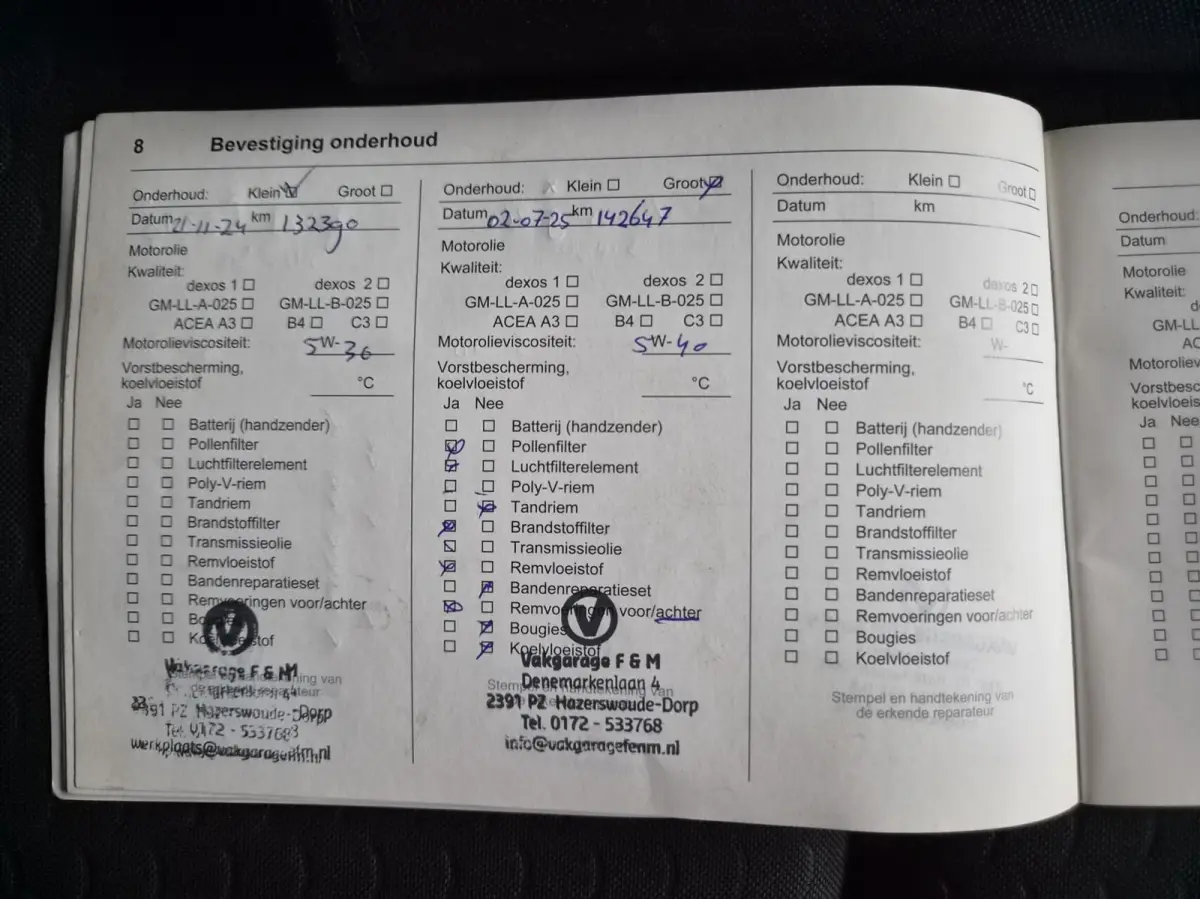 8 Bevestiging onderhoud
Onderhoud: Klein Groot
Datum 21-11-24 km 132390
Motorolie
Kwaliteit:
dexos 1 dexos 2
GM-LL-A-025 GM-LL-B-025
ACEA A3 B4 C3
Motorolieviscositeit: 5W-30
Vorstbescherming,
koelvloeistof °C
Ja Nee
Batterij (handzender)
Pollenfilter
Luchtfilterelement
Poly-V-riem
Tandriem
Brandstoffilter
Transmissieolie
Remvloeistof
Bandenreparatieset
Remvoeringen voor/achter
Vakgarage F & M
2391 PZ Hazerswoude-Dorp
Tel. 0172 - 533768
Onderhoud: Klein Groot
Datum 02-07-25 km 142647
Motorolie
Kwaliteit:
dexos 1 dexos 2
GM-LL-A-025 GM-LL-B-025
ACEA A3 B4 C3
Motorolieviscositeit: 5W-40
Vorstbescherming,
koelvloeistof °C
Ja Nee
Batterij (handzender)
Pollenfilter
Luchtfilterelement
Poly-V-riem
Tandriem
Brandstoffilter
Transmissieolie
Remvloeistof
Bandenreparatieset
Remvoeringen voor/achter
Bougies
Koelvloeistof
Vakgarage F & M
Stempel en handtekening van
Denemarkenlaan 4
2391 PZ Hazerswoude-Dorp
Tel. 0172 - 533768
info@vakgaragefenm.nl
Onderhoud: Klein Groot
Datum km
Motorolie
Kwaliteit:
dexos 1 dexos 2
GM-LL-A-025 GM-LL-B-025
ACEA A3 B4 C3
Motorolieviscositeit: W-
Vorstbescherming,
koelvloeistof °C
Ja Nee
Batterij (handzender)
Pollenfilter
Luchtfilterelement
Poly-V-riem
Tandriem
Brandstoffilter
Transmissieolie
Remvloeistof
Bandenreparatieset
Remvoeringen voor/achter
Bougies
Koelvloeistof
Stempel en handtekening van
de erkende reparateur
Onderhoud:
Datum
Motorolie
Kwaliteit:
Ja Nee